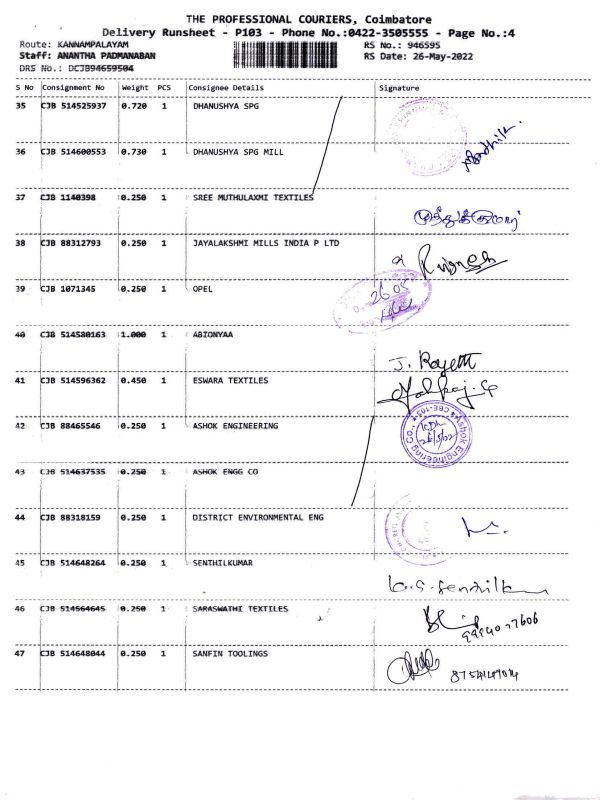 THE PROFESSIONAL COURIERS, Coimbatore
Delivery Runsheet - P103 - Phone No.:0422-3505555 - Page No.:4
Route: KANNAMPALAYAM RS No.: 946595
Staff: ANANTHA PADMANABAN RS Date: 26-May-2022
DRS No.: DCJB94659504
S No Consignment No Weight PCS Consignee Details Signature
35 CJB 514525937 0.720 1 DHANUSHYA SPG
36 CJB 514600553 0.730 1 DHANUSHYA SPG MILL
37 CJB 1140398 0.250 1 SREE MUTHULAXMI TEXTILES
38 CJB 88312793 0.250 1 JAYALAKSHMI MILLS INDIA P LTD
39 CJB 1071345 0.250 1 OPEL
26 05
40 CJB 514580163 1.000 1 ABIONYAA
41 CJB 514596362 0.450 1 ESWARA TEXTILES
42 CJB 88465546 0.250 1 ASHOK ENGINEERING
Ashok Engineering Co.
43 CJB 514637535 0.250 1 ASHOK ENGG CO
44 CJB 88318159 0.250 1 DISTRICT ENVIRONMENTAL ENG
45 CJB 514648264 0.250 1 SENTHILKUMAR
46 CJB 514564645 0.250 1 SARASWATHI TEXTILES
47 CJB 514648044 0.250 1 SANFIN TOOLINGS